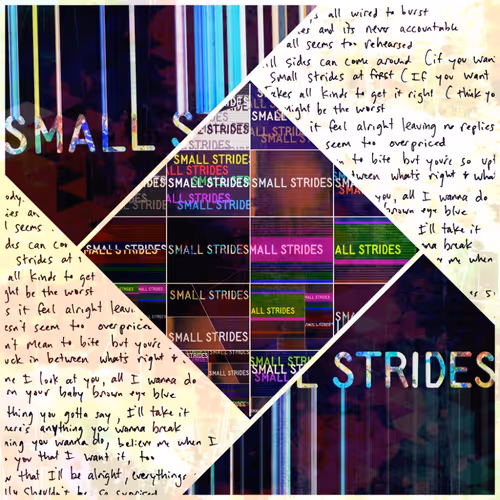 all wired to burst
and it's never accountable
all seems too rehearsed
sides can come around (if you wan
Small Strides at first (If you want
akes all kinds to get it right (think yo
might be the worst
it feel alright leaving no replies
seem too overpriced
to bite but you're so up
tween what's right & wha
you, all I wanna do
brown eye blue
I'll take it
nna break
me when
SMALL S
STRIDES
SMALL
STRIDES
SMALL STRIDES
SMALL STRIDES
SMALL STRIDES
SMALL STRIDES
SMALL STRIDES
SMALL STRIDES
SMALL STRIDES
SMALL STRIDES
SMALL STRIDES
SMALL STRIDES
SMALL STRIDES
SMALL STRIDES
SMALL STRIDES
SMALL STRIDES
SMALL
ody.
ies an
l seems
des can co
Strides at
all kinds to get
ght be the worst
s it feel alright leav
esn't seem too overpriced
n't mean to bite but you're
uck in between what's right &
me I look at you, all I wanna do
m your baby brown eye blue
thing you gotta say, I'll take it
here's anything you wanna break
hing you wanna do, believe me when I
you that I want it, too
w that I'll be alright, everythings
lly shouldn't be so surprised
L STRIDES